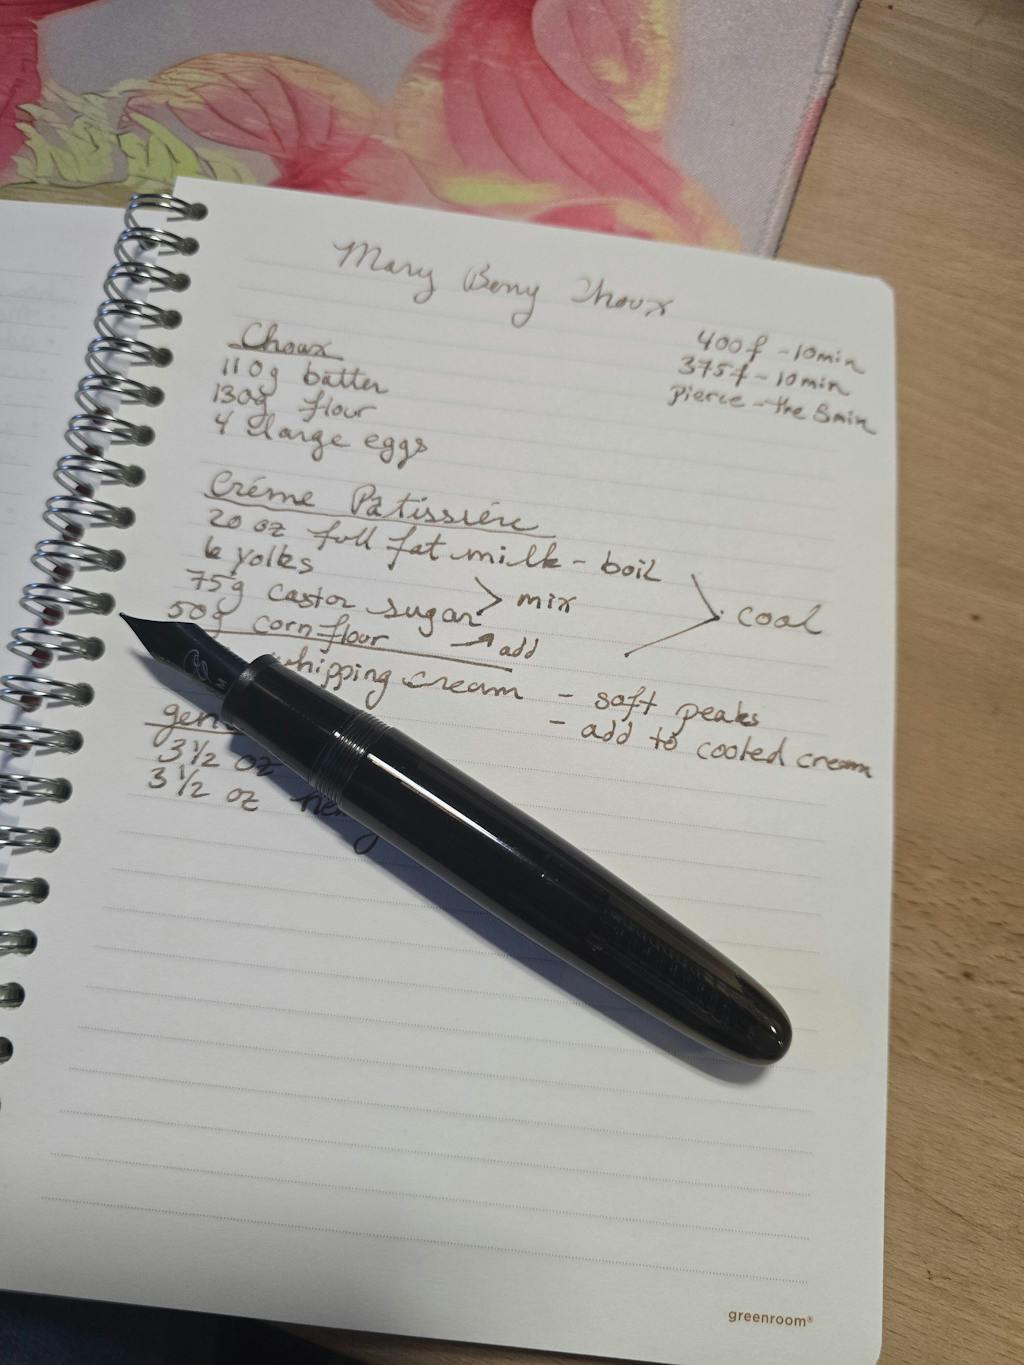 Mary Berry Choux
400f - 10min
375f - 10min
Pierce - the 8min
Choux
110g butter
130g flour
4 large eggs
Créme Pâtissiére
20 oz full fat milk - boil
6 yolks
75g castor sugar > mix
cool
50g cornflour → add
whipping cream - soft peaks
- add to cooled cream
3 1/2 oz
3 1/2 oz
greenroom®